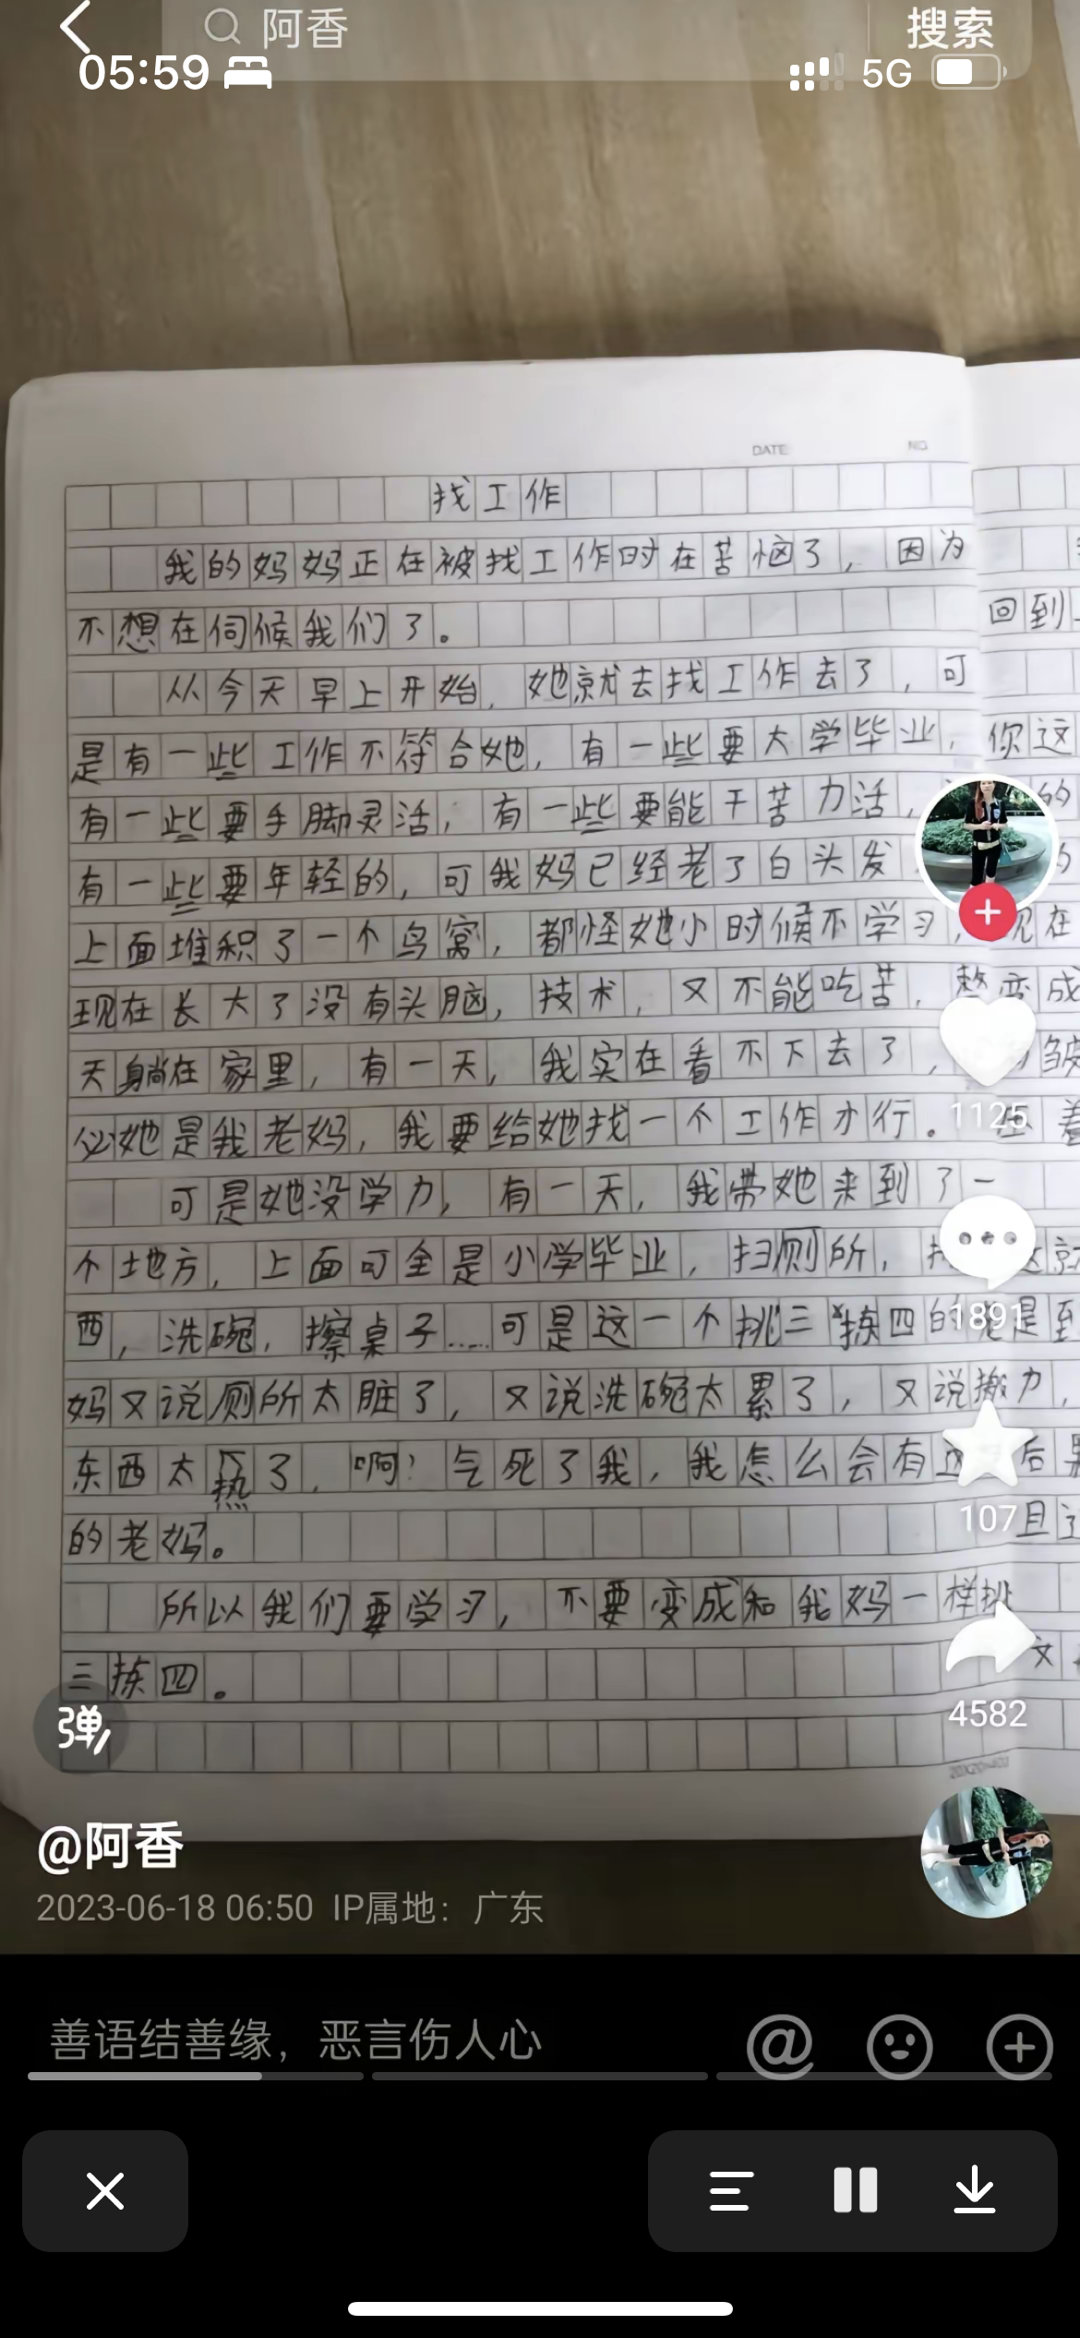 阿香
搜索
05:59
5G
DATE
NO
找工作
我的妈妈正在被找工作时在苦恼了，因为
不想在伺候我们了。
回到
从今天早上开始，她就去找工作去了，可
是有一些工作不符合她，有一些要大学毕业，
你这
有一些要手脚灵活，有一些要能干苦力活，
的
有一些要年轻的，可我妈已经老了白头发
上面堆积了一个鸟窝，都怪她小时候不学习，
现在
现在长大了没有头脑，技术，又不能吃苦，整
变成
天躺在家里，有一天，我实在看不下去了，
皱
必她是我老妈，我要给她找一个工作才行。
着
1125
可是她没学力，有一天，我带她来到了一
个地方，上面可全是小学毕业，扫厕所，
这就
西，洗碗，擦桌子……可是这一个挑三拣四的老
是至
1891
妈又说厕所太脏了，又说洗碗太累了，又说搬
力，
东西太热了，啊！气死了我，我怎么会有这
后果
的老妈。
107
且这
所以我们要学习，不要变成和我妈一样挑
三拣四。
文
弹
4582
20X20=400
@阿香
2023-06-18 06:50 IP属地：广东
善语结善缘，恶言伤人心